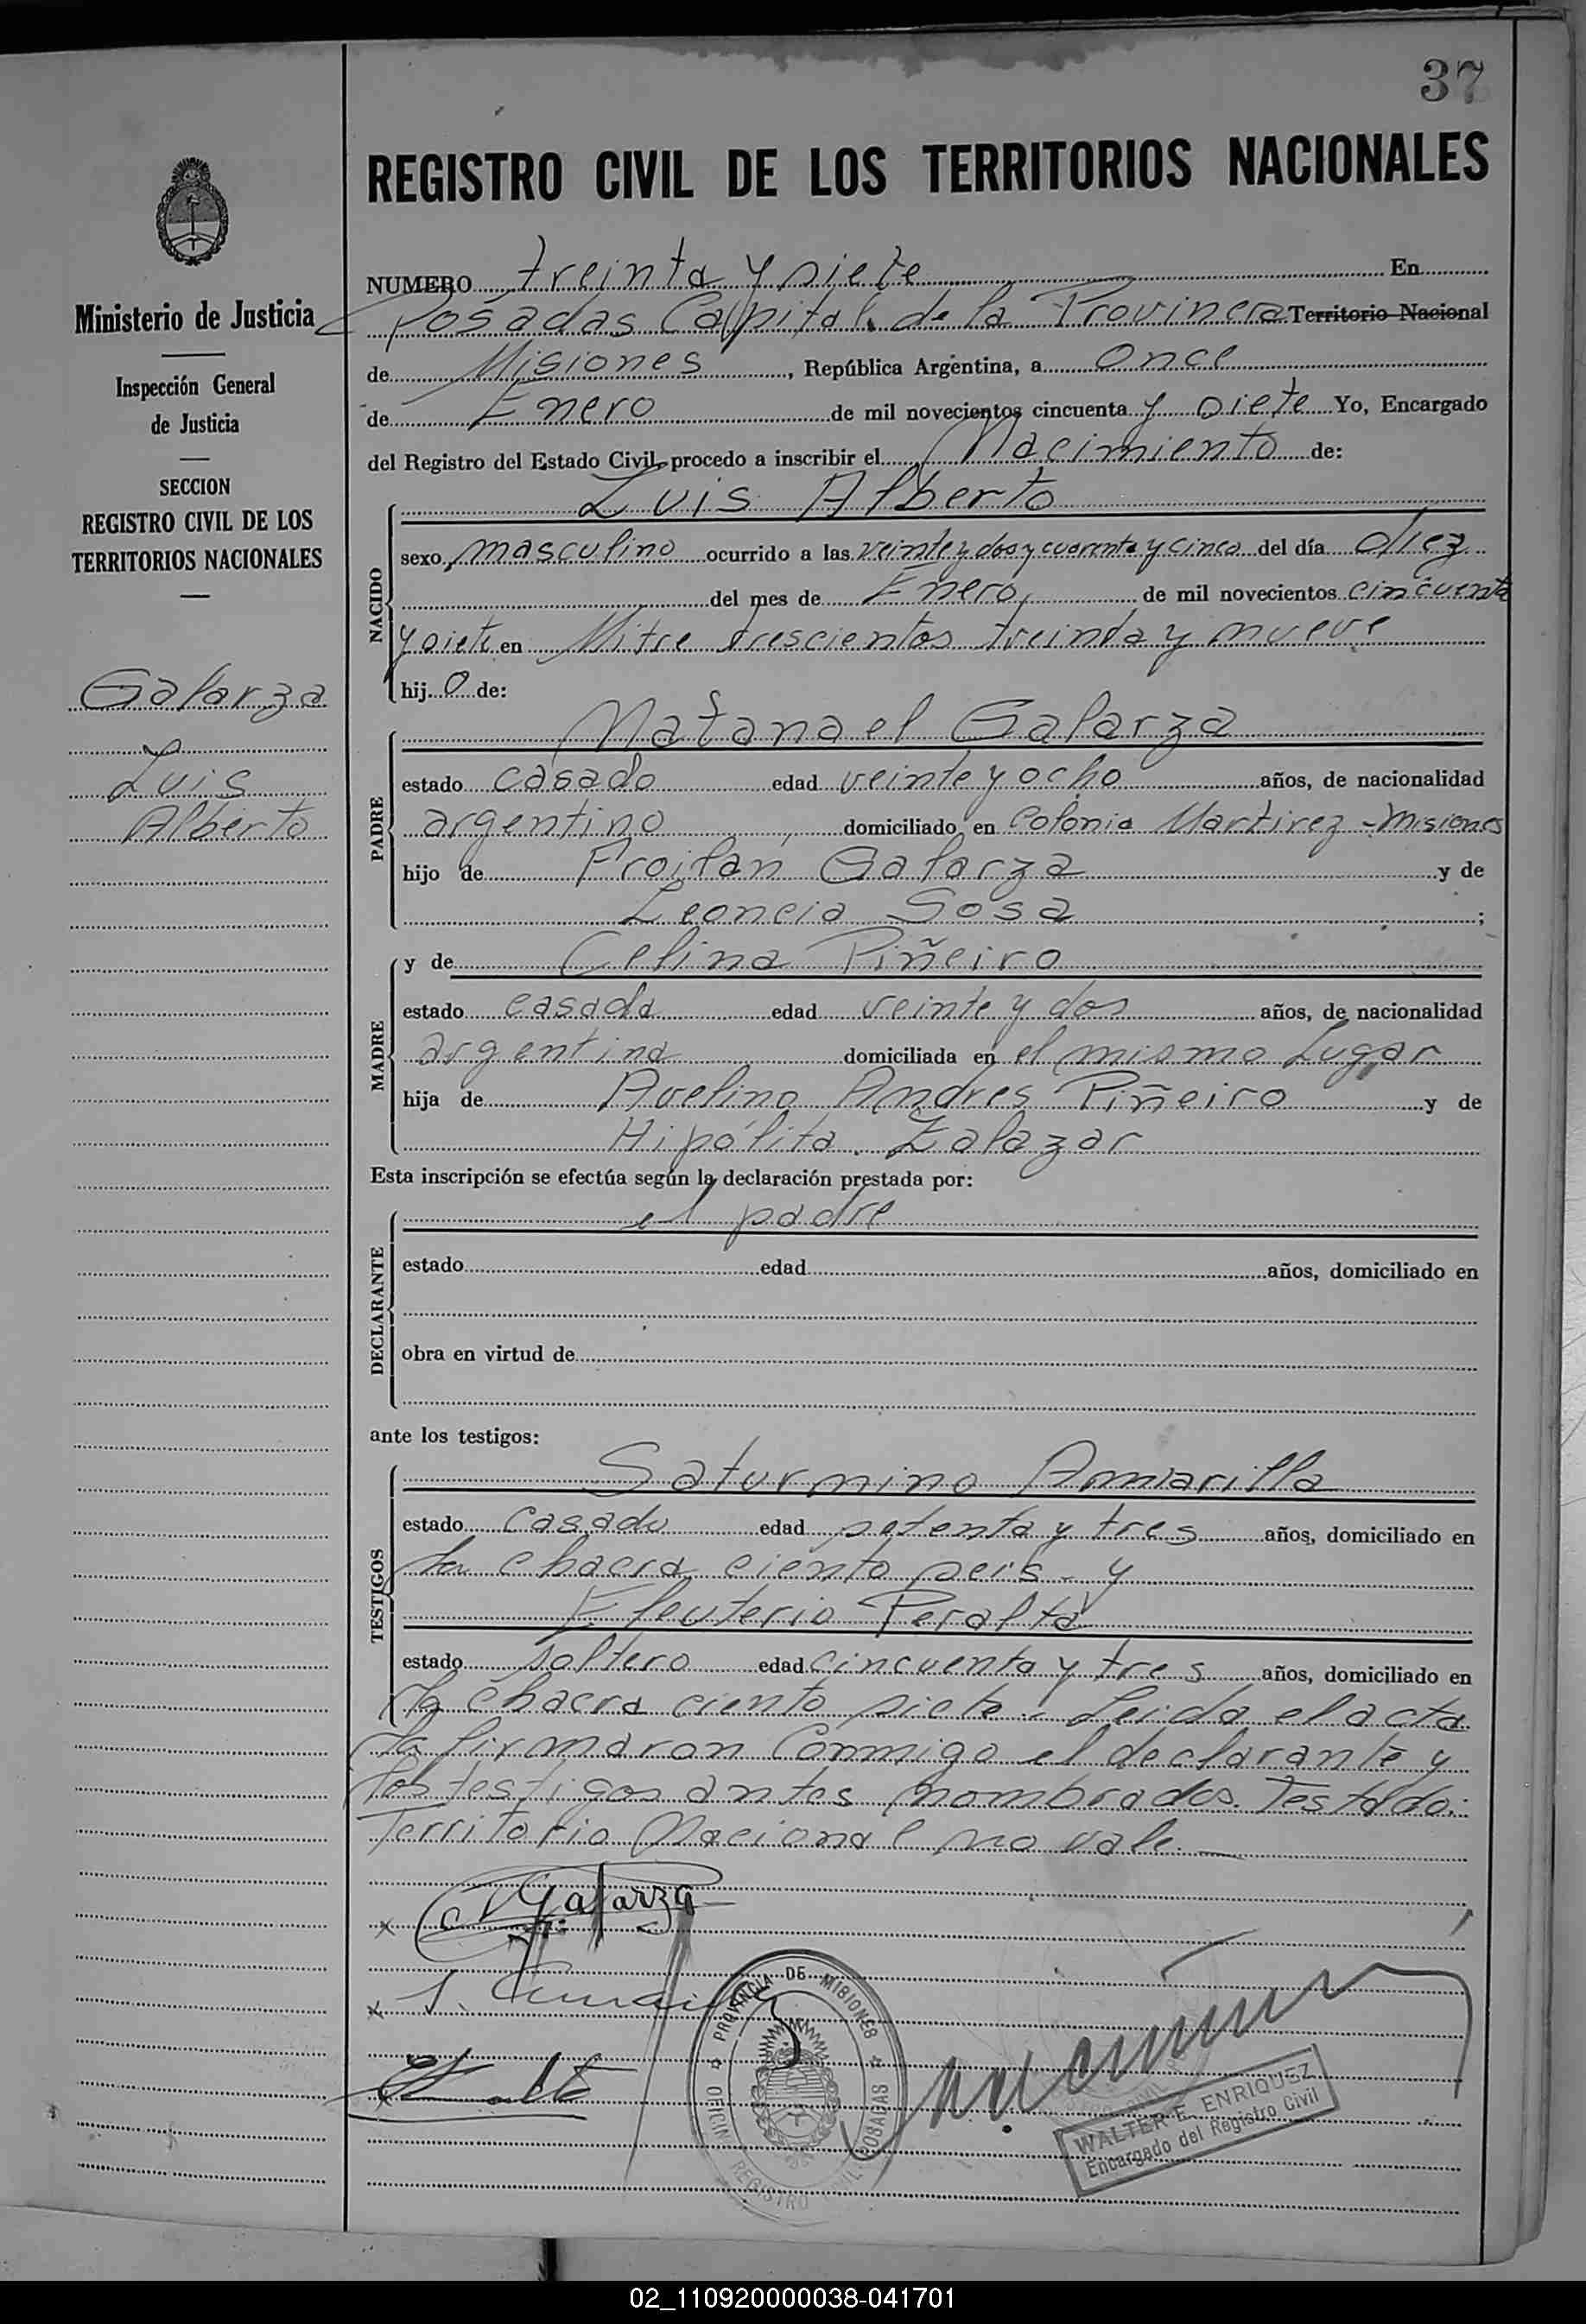 37
REGISTRO CIVIL DE LOS TERRITORIOS NACIONALES
Ministerio de Justicia
Inspección General
de Justicia
SECCION
REGISTRO CIVIL DE LOS
TERRITORIOS NACIONALES
Galarza
Luis
Alberto
NUMERO treinta y siete En
Posadas Capital de la Provincia Territorio Nacional
de Misiones, República Argentina, a Once
de Enero de mil novecientos cincuenta y siete Yo, Encargado
del Registro del Estado Civil, procedo a inscribir el Nacimiento de:
NACIDO
Luis Alberto
sexo masculino ocurrido a las veinte y dos y cuarenta y cinco del día diez
del mes de Enero de mil novecientos cincuenta
y siete en Mitre trescientos treinta y nueve
hijo de:
PADRE
Natanael Galarza
estado casado edad veinte y ocho años, de nacionalidad
argentino domiciliado en Colonia Martirez - Misiones
hijo de Froilan Galarza y de
Leoncia Sosa;
MADRE
y de Celina Piñeiro
estado casada edad veinte y dos años, de nacionalidad
argentina domiciliada en el mismo Lugar
hija de Avelino Andres Piñeiro y de
Hipólita Zalazar
Esta inscripción se efectúa según la declaración prestada por:
DECLARANTE
el padre
estado edad años, domiciliado en
obra en virtud de
ante los testigos:
TESTIGOS
Saturnino Amarilla
estado casado edad setenta y tres años, domiciliado en
la chacra ciento seis - y
Eleuterio Peralta
estado soltero edad cincuenta y tres años, domiciliado en
la chacra ciento siete. Leida el acta
la firmaron conmigo el declarante y
los testigos antes nombrados. Testado:
Territorio Nacional no vale.
Galarza
PROVINCIA DE MISIONES
OFICINA REGISTRO CIVIL POSADAS
WALTER E. ENRIQUEZ
Encargado del Registro Civil
02_110920000038-041701